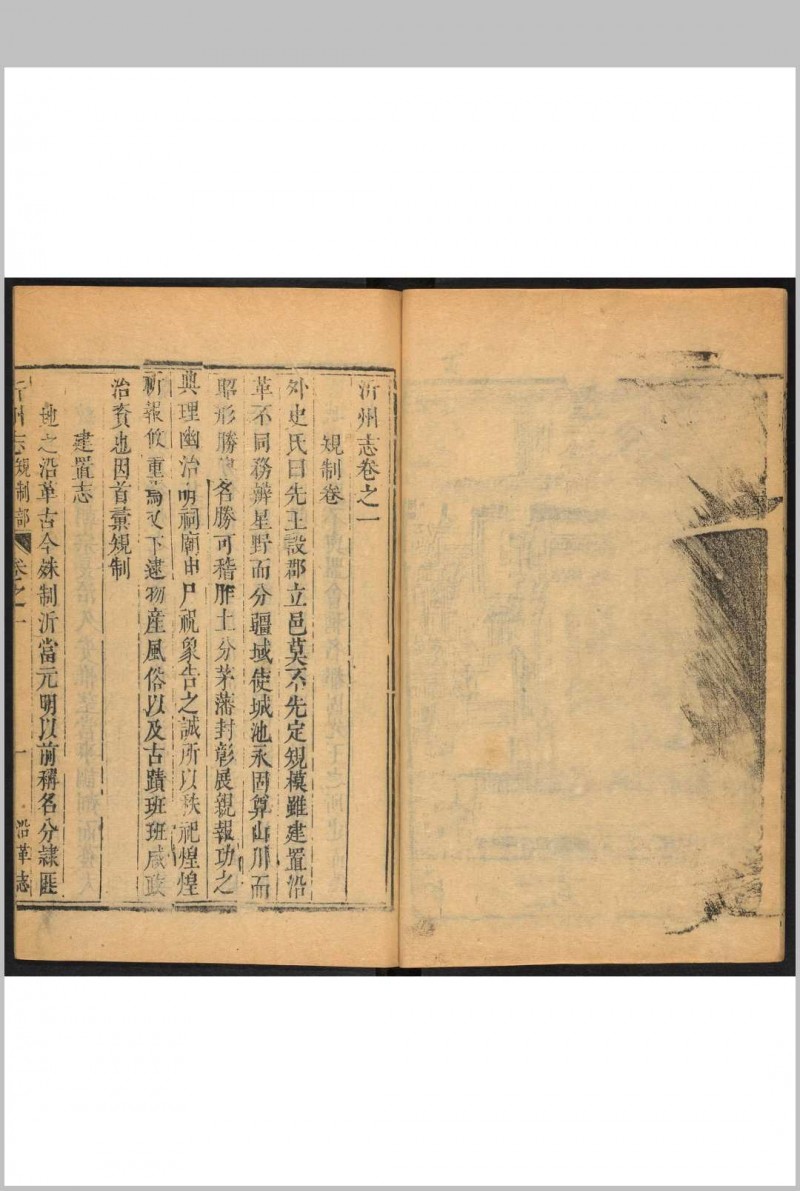 沂州志卷之一
規制卷
外史氏曰先王設郡立邑莫不先定規模雖建置沿
革不同務辨星野而分疆域使城池永固算山川而
昭形勝名勝可稽胙土分茅藩封彰展親報功之
典理幽治明祠廟申尸祝象告之誠所以秩祀煌煌
祈報攸重焉又下逮物產風俗以及古蹟班班咸
治資也因首彙規制
建置志
地之沿革古今殊制沂當元明以前稱名分隸匪
沂州志 規制部 卷之一 一 沿革志